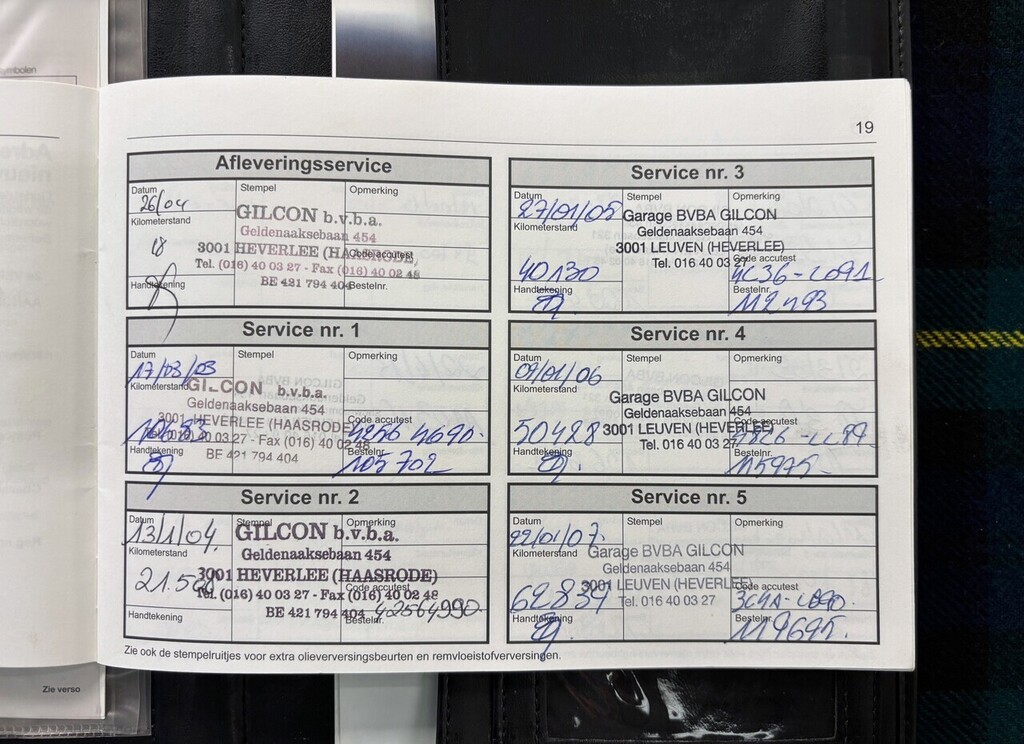 19
Afleveringsservice
Datum Stempel Opmerking
26/04
Kilometerstand
GILCON b.v.b.a.
Geldenaaksebaan 454
3001 HEVERLEE (HAASRODE)
Code accutest
Tel. (016) 40 03 27 - Fax (016) 40 02 48
Handtekening Bestelnr.
BE 421 794 404
Service nr. 1
Datum Stempel Opmerking
17/03/03
Kilometerstand
GILCON b.v.b.a.
Geldenaaksebaan 454
3001 HEVERLEE (HAASRODE)
Code accutest
Tel. (016) 40 03 27 - Fax (016) 40 02 48
Handtekening Bestelnr.
BE 421 794 404
105702
Service nr. 2
Datum Stempel Opmerking
13/1/04
Kilometerstand
GILCON b.v.b.a.
Geldenaaksebaan 454
3001 HEVERLEE (HAASRODE)
Code accutest
Tel. (016) 40 03 27 - Fax (016) 40 02 48
Handtekening Bestelnr.
BE 421 794 404
Service nr. 3
Datum Stempel Opmerking
27/01/05
Kilometerstand
Garage BVBA GILCON
Geldenaaksebaan 454
3001 LEUVEN (HEVERLEE)
Code accutest
Tel. 016 40 03 27
40130 4C36-L091
Handtekening Bestelnr.
112493
Service nr. 4
Datum Stempel Opmerking
09/01/06
Kilometerstand
Garage BVBA GILCON
Geldenaaksebaan 454
3001 LEUVEN (HEVERLEE)
Code accutest
Tel. 016 40 03 27
50428
Handtekening Bestelnr.
115975
Service nr. 5
Datum Stempel Opmerking
22/01/07
Kilometerstand
Garage BVBA GILCON
Geldenaaksebaan 454
3001 LEUVEN (HEVERLEE)
Code accutest
Tel. 016 40 03 27
62837
Handtekening Bestelnr.
119695
Zie ook de stempelruitjes voor extra olieverversingsbeurten en remvloeistofverversingen.
Zie verso